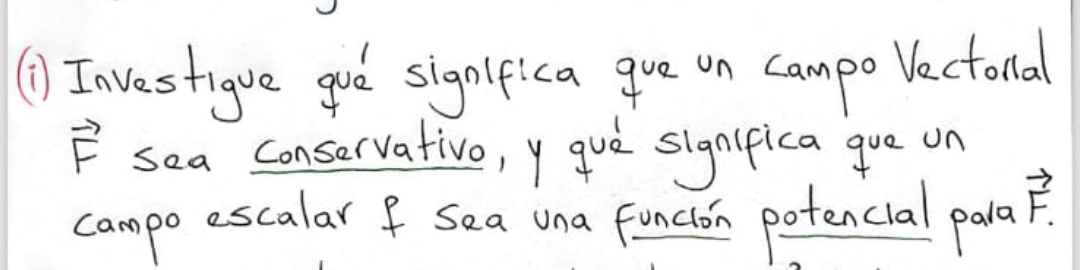 (i) Investigue qué significa que un campo Vectorial
F⃗ sea conservativo, y qué significa que un
campo escalar f sea una función potencial para F⃗.